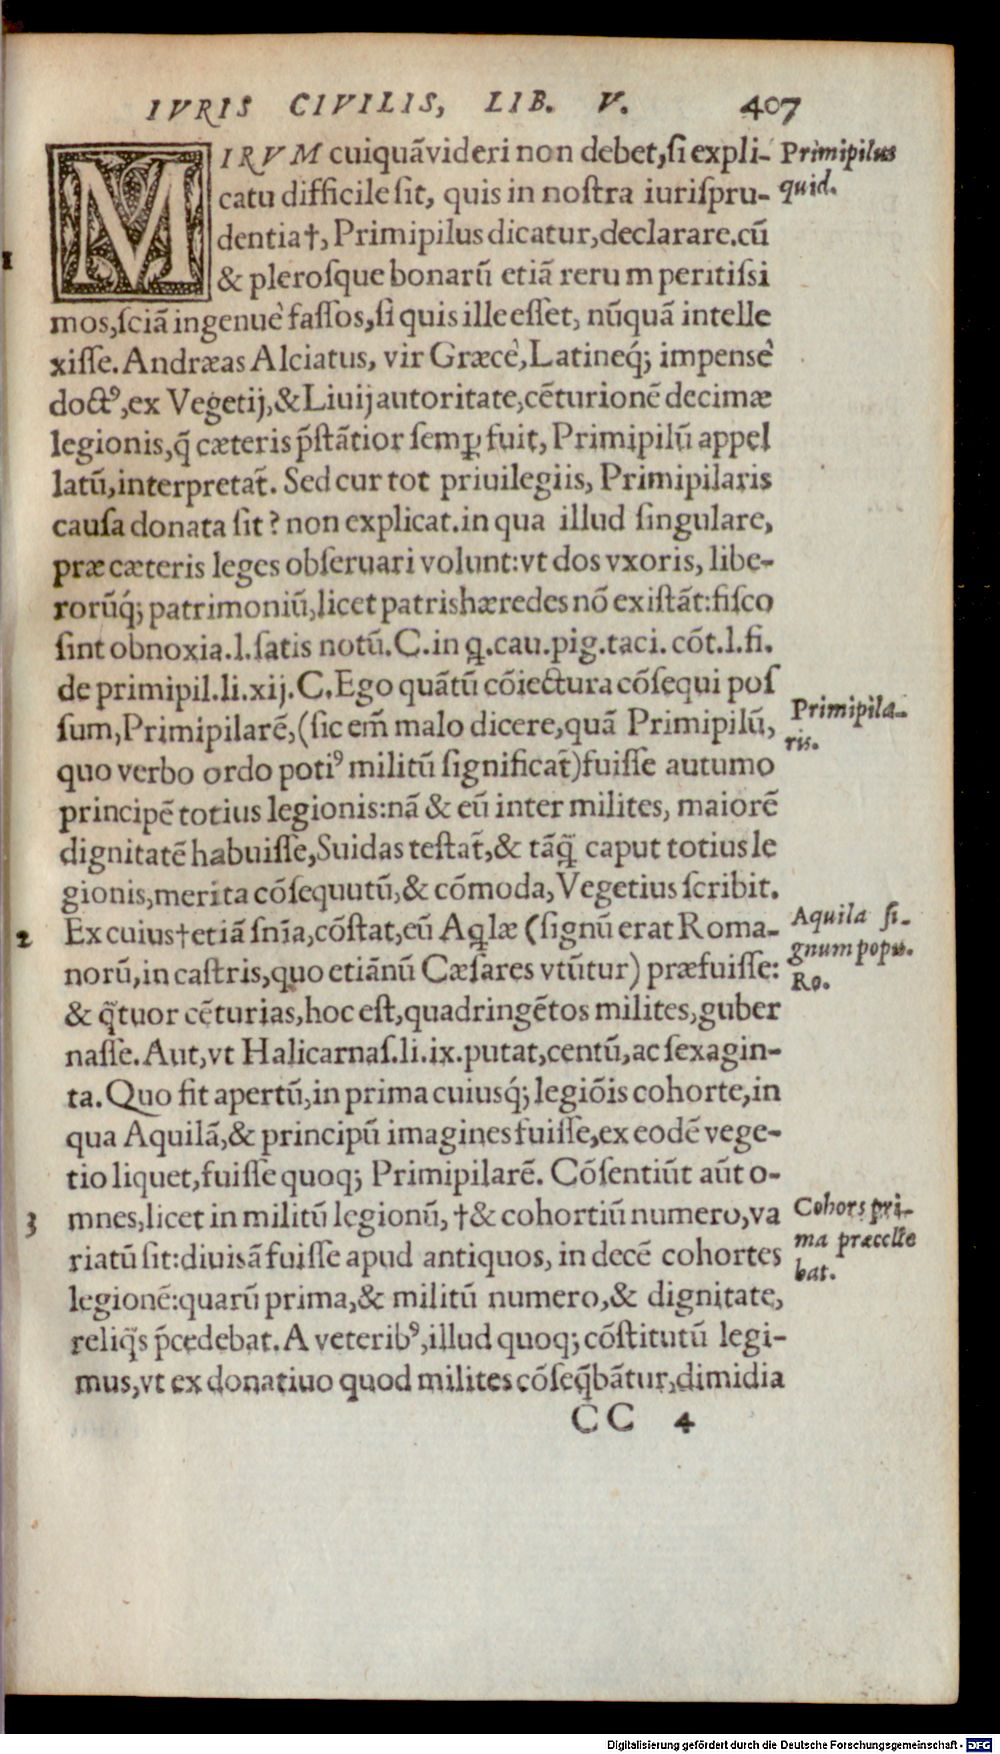 IVRIS CIVILIS, LIB. V. 407
MIRVM cuiquãvideri non debet,ſi expli- Primipilus
catu difficile ſit, quis in noſtra iuriſpru- quid.
1 dentia†, Primipilus dicatur,declarare.cũ
& pleroſque bonarũ etiã reru m peritiſsi
mos,ſciã ingenuè faſſos,ſi quis ille eſſet, nũquã intelle
xiſſe. Andræas Alciatus, vir Græcè, Latineq́; impensè
doctꝰ,ex Vegetij,&Liuij autoritate,cẽturionẽ decimæ
legionis,q̃ cæteris p̃ſtãtior ſemꝑ fuit, Primipilũ appel
latũ,interpretat̃. Sed cur tot priuilegiis, Primipilaris
cauſa donata ſit? non explicat.in qua illud ſingulare,
præ cæteris leges obſeruari volunt:vt dos vxoris, libe-
rorũq́; patrimoniũ,licet patris hæredes nõ exiſtãt:fiſco
ſint obnoxia.l.ſatis notũ.C.in q̃.cau.pig.taci. cõt.l.fi.
de primipil.li.xij.C.Ego quãtũ cõiectura cõſequi poſ
ſum,Primipilarẽ,(ſic em̃ malo dicere,quã Primipilũ, Primipila-
quo verbo ordo potiꝰ militũ ſignificat̃)fuiſſe autumo ris.
principẽ totius legionis:nã & eũ inter milites, maiorẽ
dignitatẽ habuiſſe,Suidas teſtat̃,& tãq̃ caput totius le
gionis,merita cõſequutũ,& cõmoda, Vegetius ſcribit.
2 Ex cuius†etiã ſnĩa,cõſtat,eũ Aq̃læ (ſignũ erat Roma- Aquila ſi-
norũ,in caſtris,quo etiãnũ Cæſares vtũtur) præfuiſſe: gnum popu.
& q̃tuor cẽturias,hoc eſt,quadringẽtos milites,guber Ro.
naſſe. Aut,vt Halicarnaſ.li.ix.putat,centũ,ac ſexagin-
ta. Quo fit apertũ,in prima cuiusq́; legiõis cohorte,in
qua Aquilã,& principũ imagines fuiſſe,ex eodẽ vege-
tio liquet,fuiſſe quoq; Primipilarẽ. Cõſentiũt aũt o-
3 mnes,licet in militũ legionũ, †& cohortiũ numero,va Cohors pri-
riatũ ſit:diuisã fuiſſe apud antiquos, in decẽ cohortes ma præcelle
legionẽ:quarũ prima,& militũ numero,& dignitate, bat.
reliq̃s p̃cedebat. A veteribꝰ,illud quoq; cõſtitutũ legi-
mus,vt ex donatiuo quod milites cõſeq̃bãtur,dimidia
CC 4
Digitalisierung gefördert durch die Deutsche Forschungsgemeinschaft - DFG